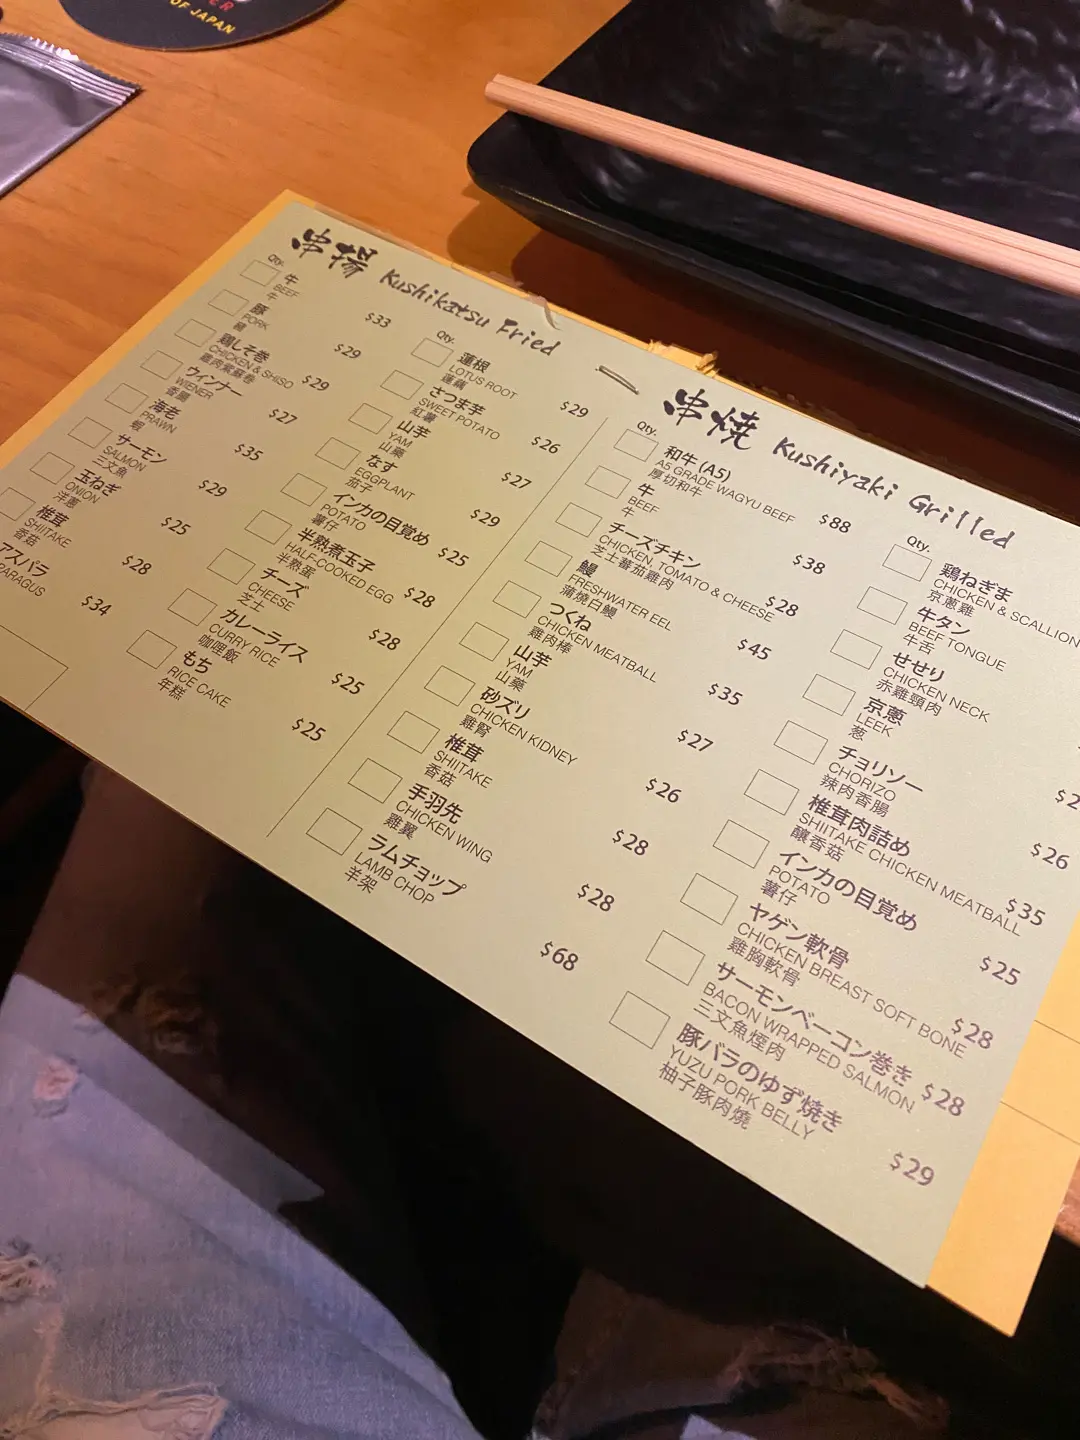 OF JAPAN
串揚 Kushikatsu Fried
Qty.
牛
BEEF
牛
$33
豚
PORK
豬
$29
鶏しそ巻
CHICKEN & SHISO
雞肉紫蘇卷
$29
ウィンナー
WIENER
香腸
$27
海老
PRAWN
蝦
$35
サーモン
SALMON
三文魚
$29
玉ねぎ
ONION
洋蔥
$25
椎茸
SHIITAKE
香菇
$28
アスパラ
PARAGUS
$34
Qty.
蓮根
LOTUS ROOT
蓮藕
$29
さつま芋
SWEET POTATO
紅薯
$26
山芋
YAM
山藥
$27
なす
EGGPLANT
茄子
$29
インカの目覚め
POTATO
薯仔
$25
半熟煮玉子
HALF-COOKED EGG
半熟蛋
$28
チーズ
CHEESE
芝士
$28
カレーライス
CURRY RICE
咖哩飯
$25
もち
RICE CAKE
年糕
$25
串焼 Kushiyaki Grilled
Qty.
和牛 (A5)
A5 GRADE WAGYU BEEF
厚切和牛
$88
牛
BEEF
牛
$38
チーズチキン
CHICKEN, TOMATO & CHEESE
芝士蕃茄雞肉
$28
鰻
FRESHWATER EEL
蒲燒白鰻
$45
つくね
CHICKEN MEATBALL
雞肉棒
$35
山芋
YAM
山藥
$27
砂ズリ
CHICKEN KIDNEY
雞腎
$26
椎茸
SHIITAKE
香菇
$28
手羽先
CHICKEN WING
雞翼
$28
ラムチョップ
LAMB CHOP
羊架
$68
Qty.
鶏ねぎま
CHICKEN & SCALLION
京蔥雞
牛タン
BEEF TONGUE
牛舌
せせり
CHICKEN NECK
赤雞頸肉
京蔥
LEEK
葱
$2
チョリソー
CHORIZO
辣肉香腸
$26
椎茸肉詰め
SHIITAKE CHICKEN MEATBALL
釀香菇
$35
インカの目覚め
POTATO
薯仔
$25
ヤゲン軟骨
CHICKEN BREAST SOFT BONE
雞胸軟骨
$28
サーモンベーコン巻き
BACON WRAPPED SALMON
三文魚煙肉
$28
豚バラのゆず焼き
YUZU PORK BELLY
柚子豚肉燒
$29